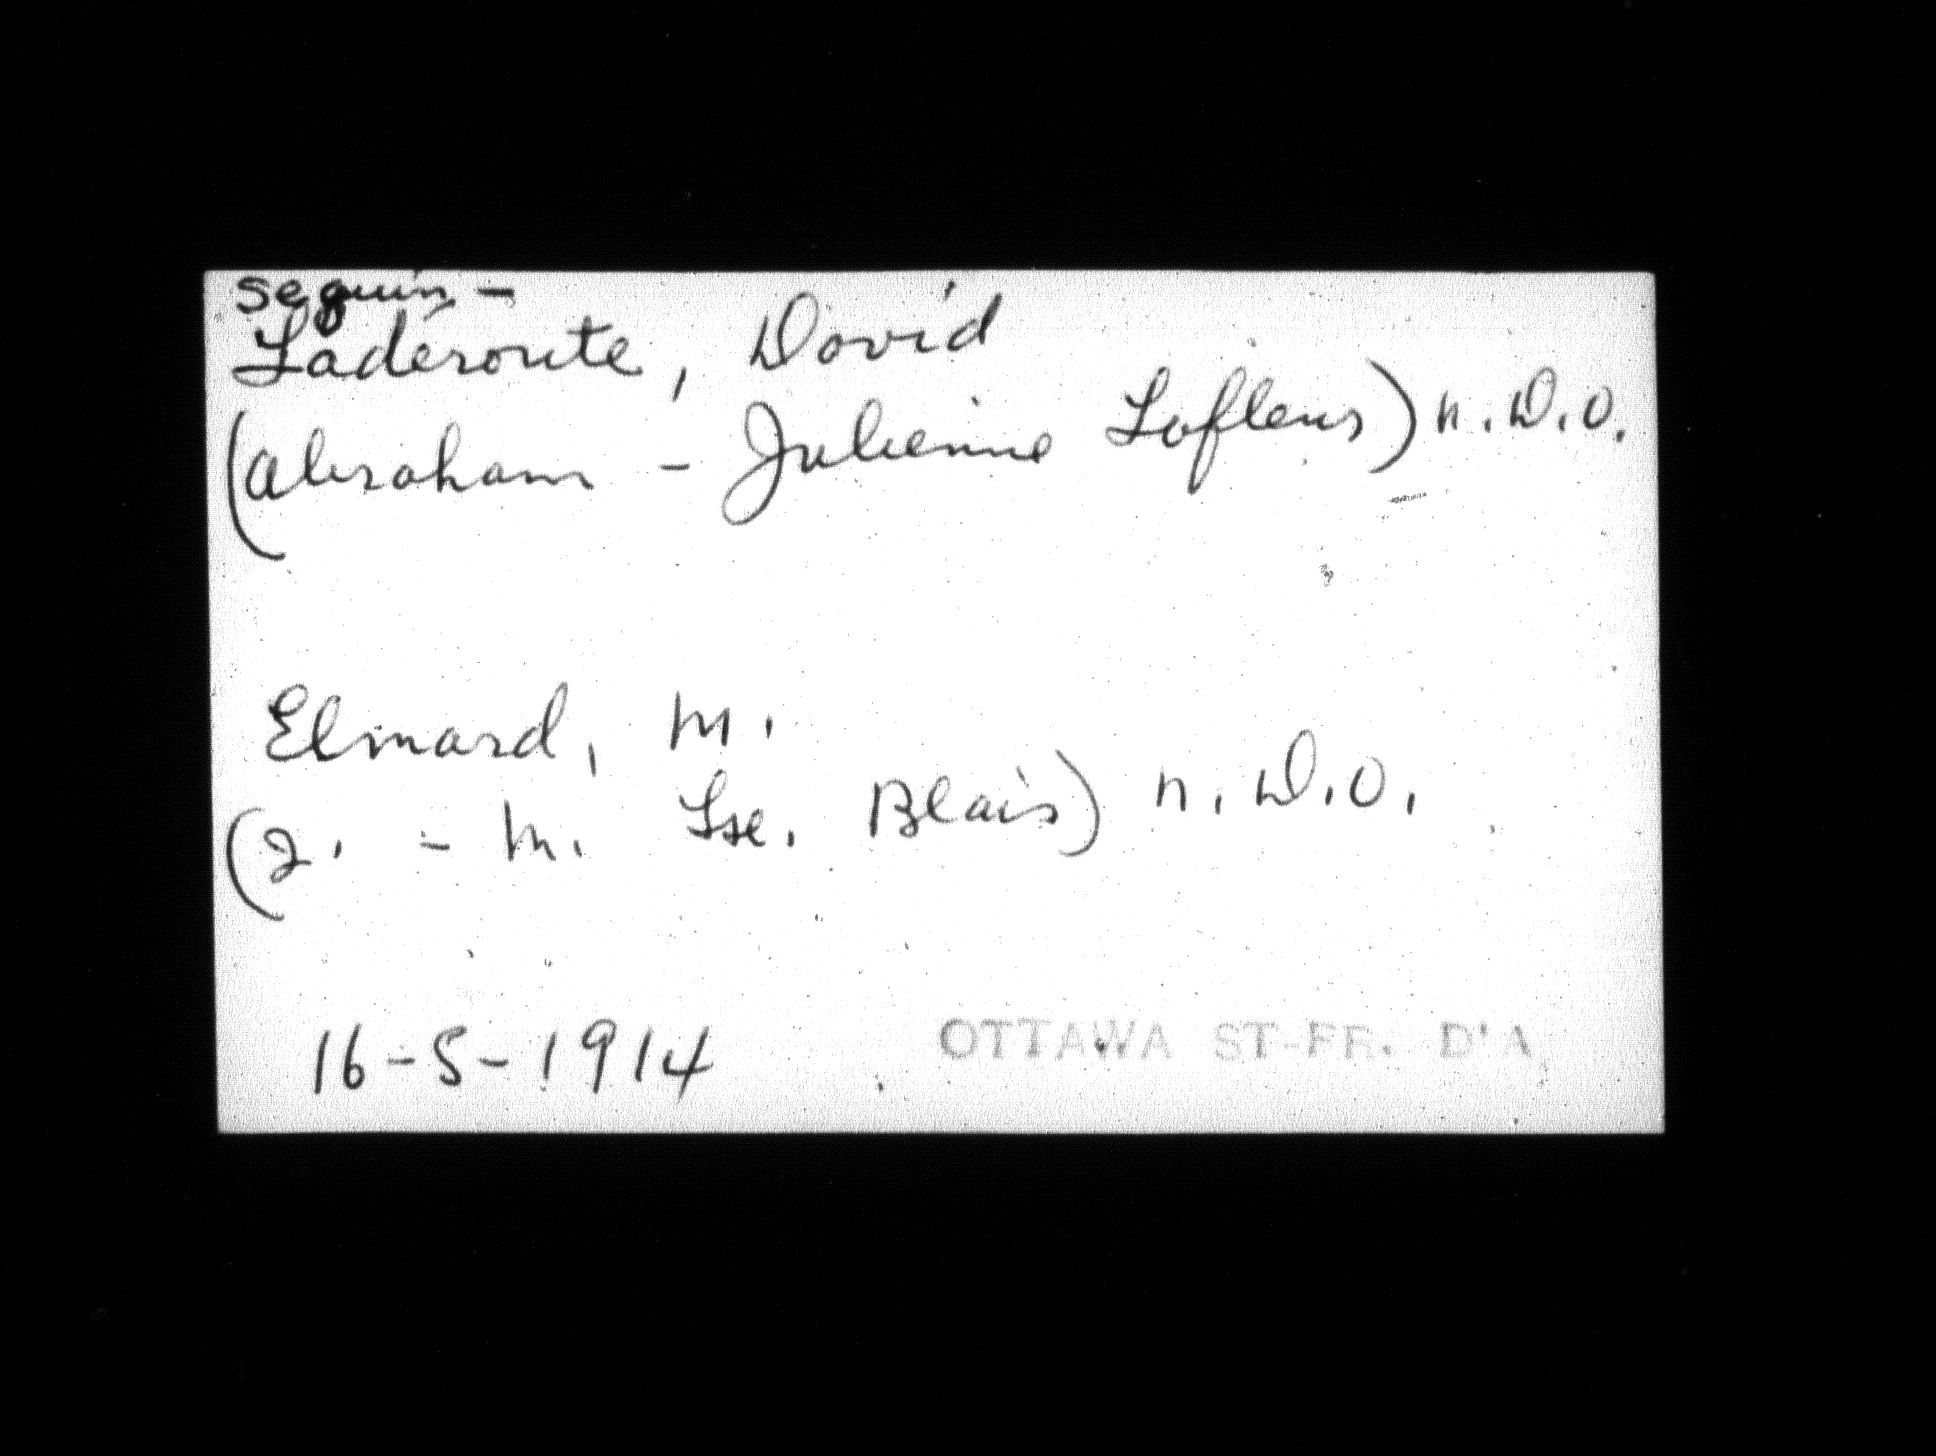 Seguin -
Laderoute, David
(Abraham - Julienne Lafleur) N.D.O.
Elmard, M.
(J. - M. Lse. Blais) N.D.O.
16-5-1914 OTTAWA ST-FR. D'A.